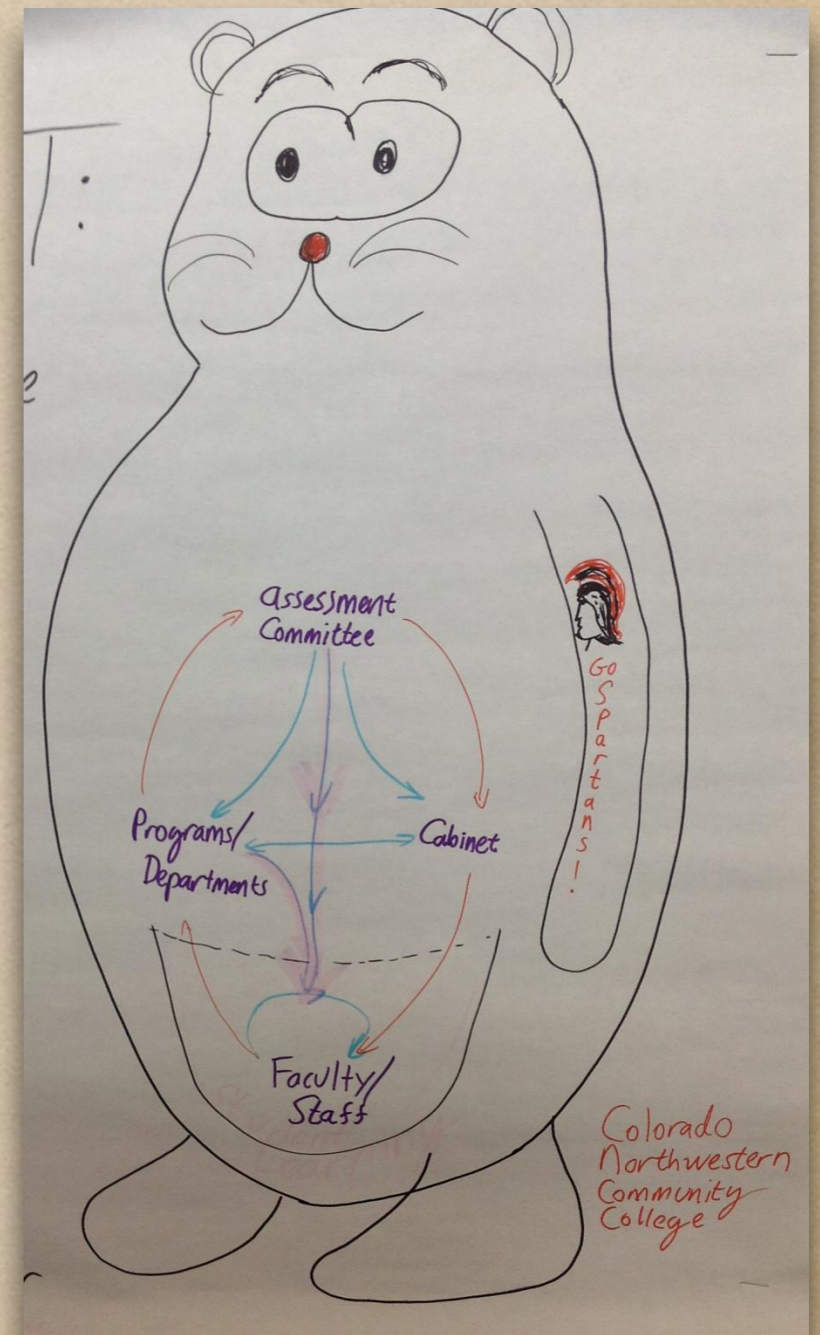 T:
e
Assessment
Committee
GO
Spartans!
Programs/
Departments
Cabinet
Faculty/
Staff
Student
Learning
Colorado
Northwestern
Community
College